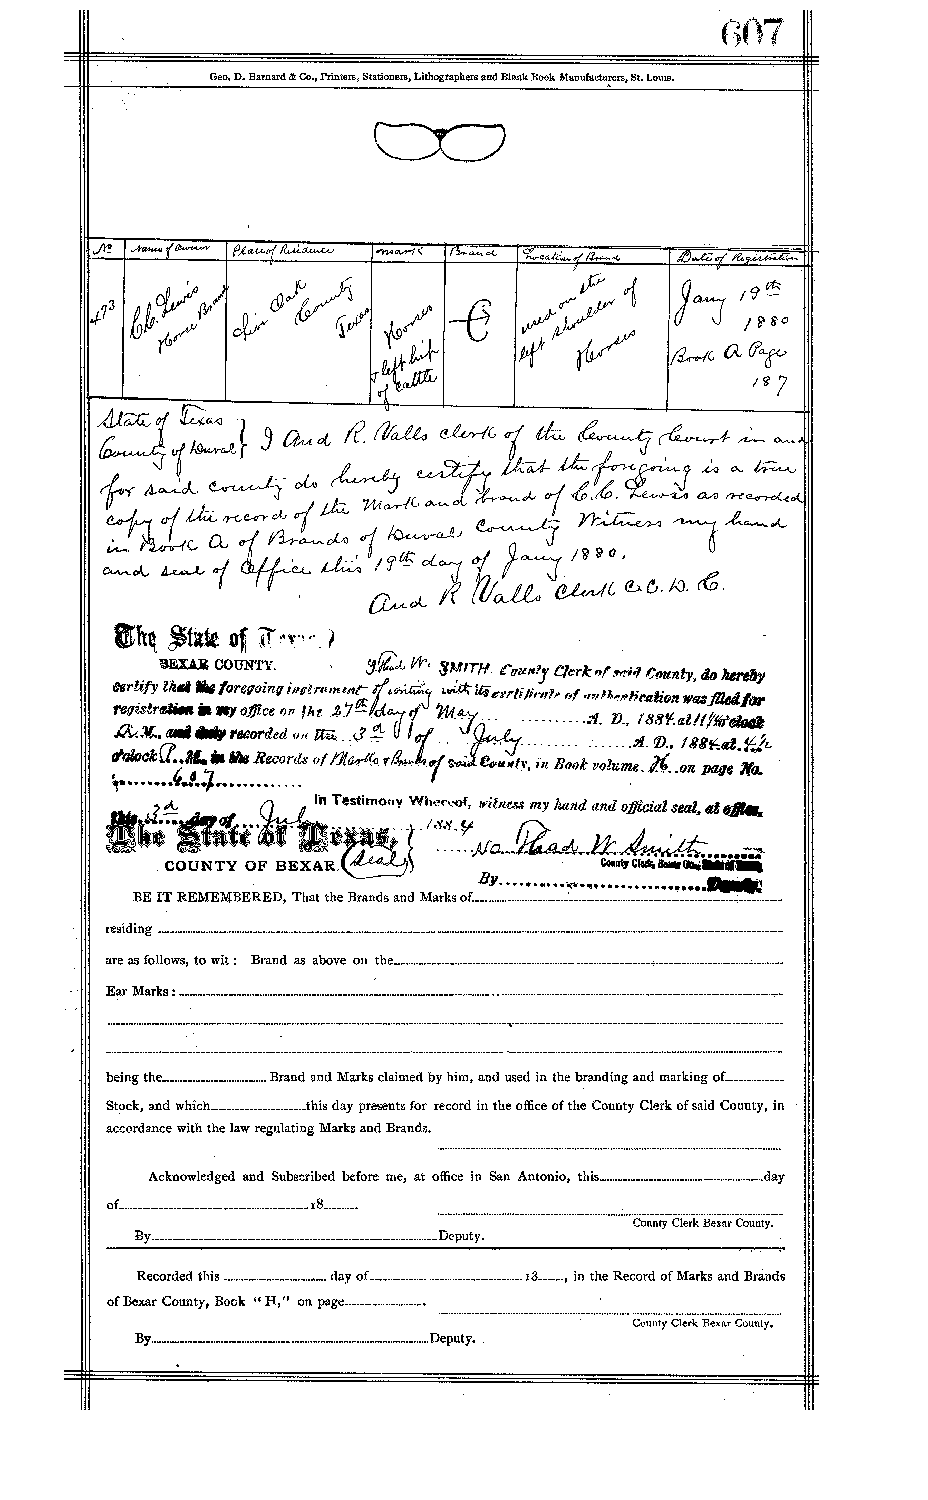 607
Geo. D. Barnard & Co., Printers, Stationers, Lithographers and Blank Book Manufacturers, St. Louis.
No Name of Owner Place of Residence Mark Brand Location of Brand Date of Registration
473 C.C. Lewis Horse Brand Live Oak County Texas Horses & left hip of cattle C used on the left shoulder of Horses Jany 19th 1880 Book A Page 187
State of Texas
County of Duval } I And R. Valls clerk of the County Court in and
for said county do hereby certify that the foregoing is a true
copy of the record of the Mark and brand of C.C. Lewis as recorded
in Book A of Brands of Duval County Witness my hand
and seal of office this 19th day of Jany 1880.
And R Valls Clerk C.C. D. C.
The State of Texas }
BEXAR COUNTY. I Thad W. SMITH County Clerk of said County, do hereby
certify that the foregoing instrument of writing with its certificate of authentication was filed for
registration in my office on the 27th day of May A. D., 1884 at 11 1/2 o'clock
A. M., and duly recorded on the 3d of July A. D., 1884 at 4 1/2
o'clock P. M., in the Records of Marks & Brands of said County, in Book volume H on page No.
607
In Testimony Whereof, witness my hand and official seal, at office,
this 3d day of July 1884
The State of Texas, }
COUNTY OF BEXAR (seal) Thad W Smith
County Clerk, Bexar Co.,
By Deputy.
BE IT REMEMBERED, That the Brands and Marks of
residing
are as follows, to wit: Brand as above on the
Ear Marks:
being the Brand and Marks claimed by him, and used in the branding and marking of
Stock, and which this day presents for record in the office of the County Clerk of said County, in
accordance with the law regulating Marks and Brands.
Acknowledged and Subscribed before me, at office in San Antonio, this day
of 18
County Clerk Bexar County.
By Deputy.
Recorded this day of 18 , in the Record of Marks and Brands
of Bexar County, Book "H," on page .
County Clerk Bexar County.
By Deputy.